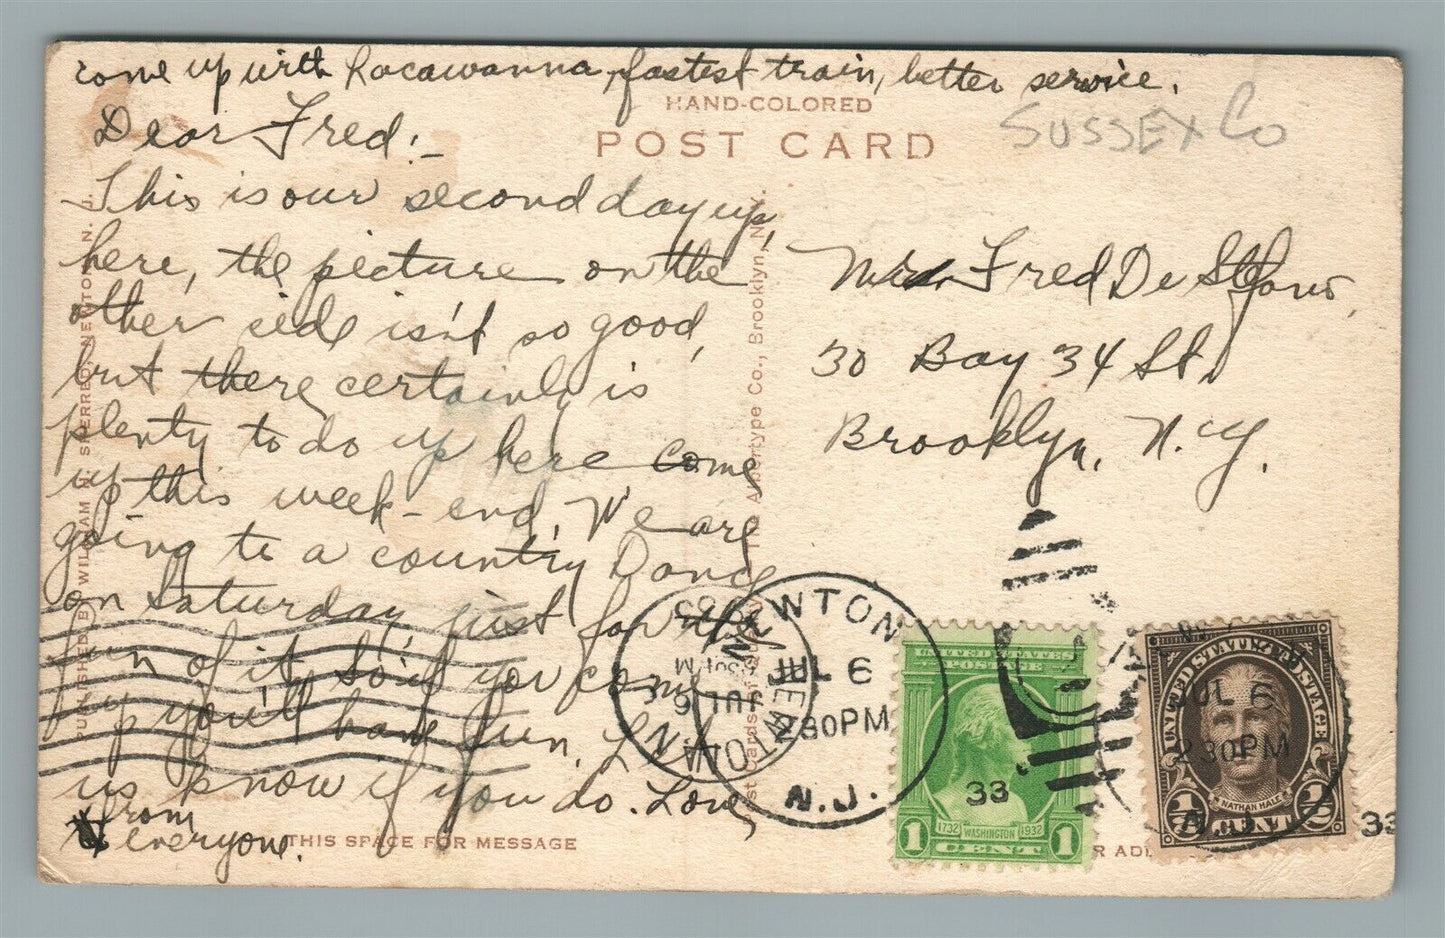 come up with Racawanna, fastest train, better service.
HAND-COLORED
POST CARD
SUSSEX Co
Dear Fred:-
This is our second day up
here, the picture on the
other side isn't so good,
but there certainly is
plenty to do up here come
up this week-end. We are
going to a country Dance
on Saturday just for the
fun of it, so if you come
up you'll have fun. Let
us know if you do. Love
from
everyone.
Fred De Stefano,
30 Bay 34 St.
Brooklyn, N.Y.
PUBLISHED BY WILLIAM H. NEWTON, N. J.
The Albertype Co., Brooklyn, N. Y.
THIS SPACE FOR MESSAGE
NEWTON
JUL 6
2 30PM
N.J.
33
UNITED STATES
POSTAGE
1732 WASHINGTON 1932
1 CENT 1
UNITED STATES POSTAGE
JUL 6
2 30PM
NATHAN HALE
1/2 CENT 1/2
33